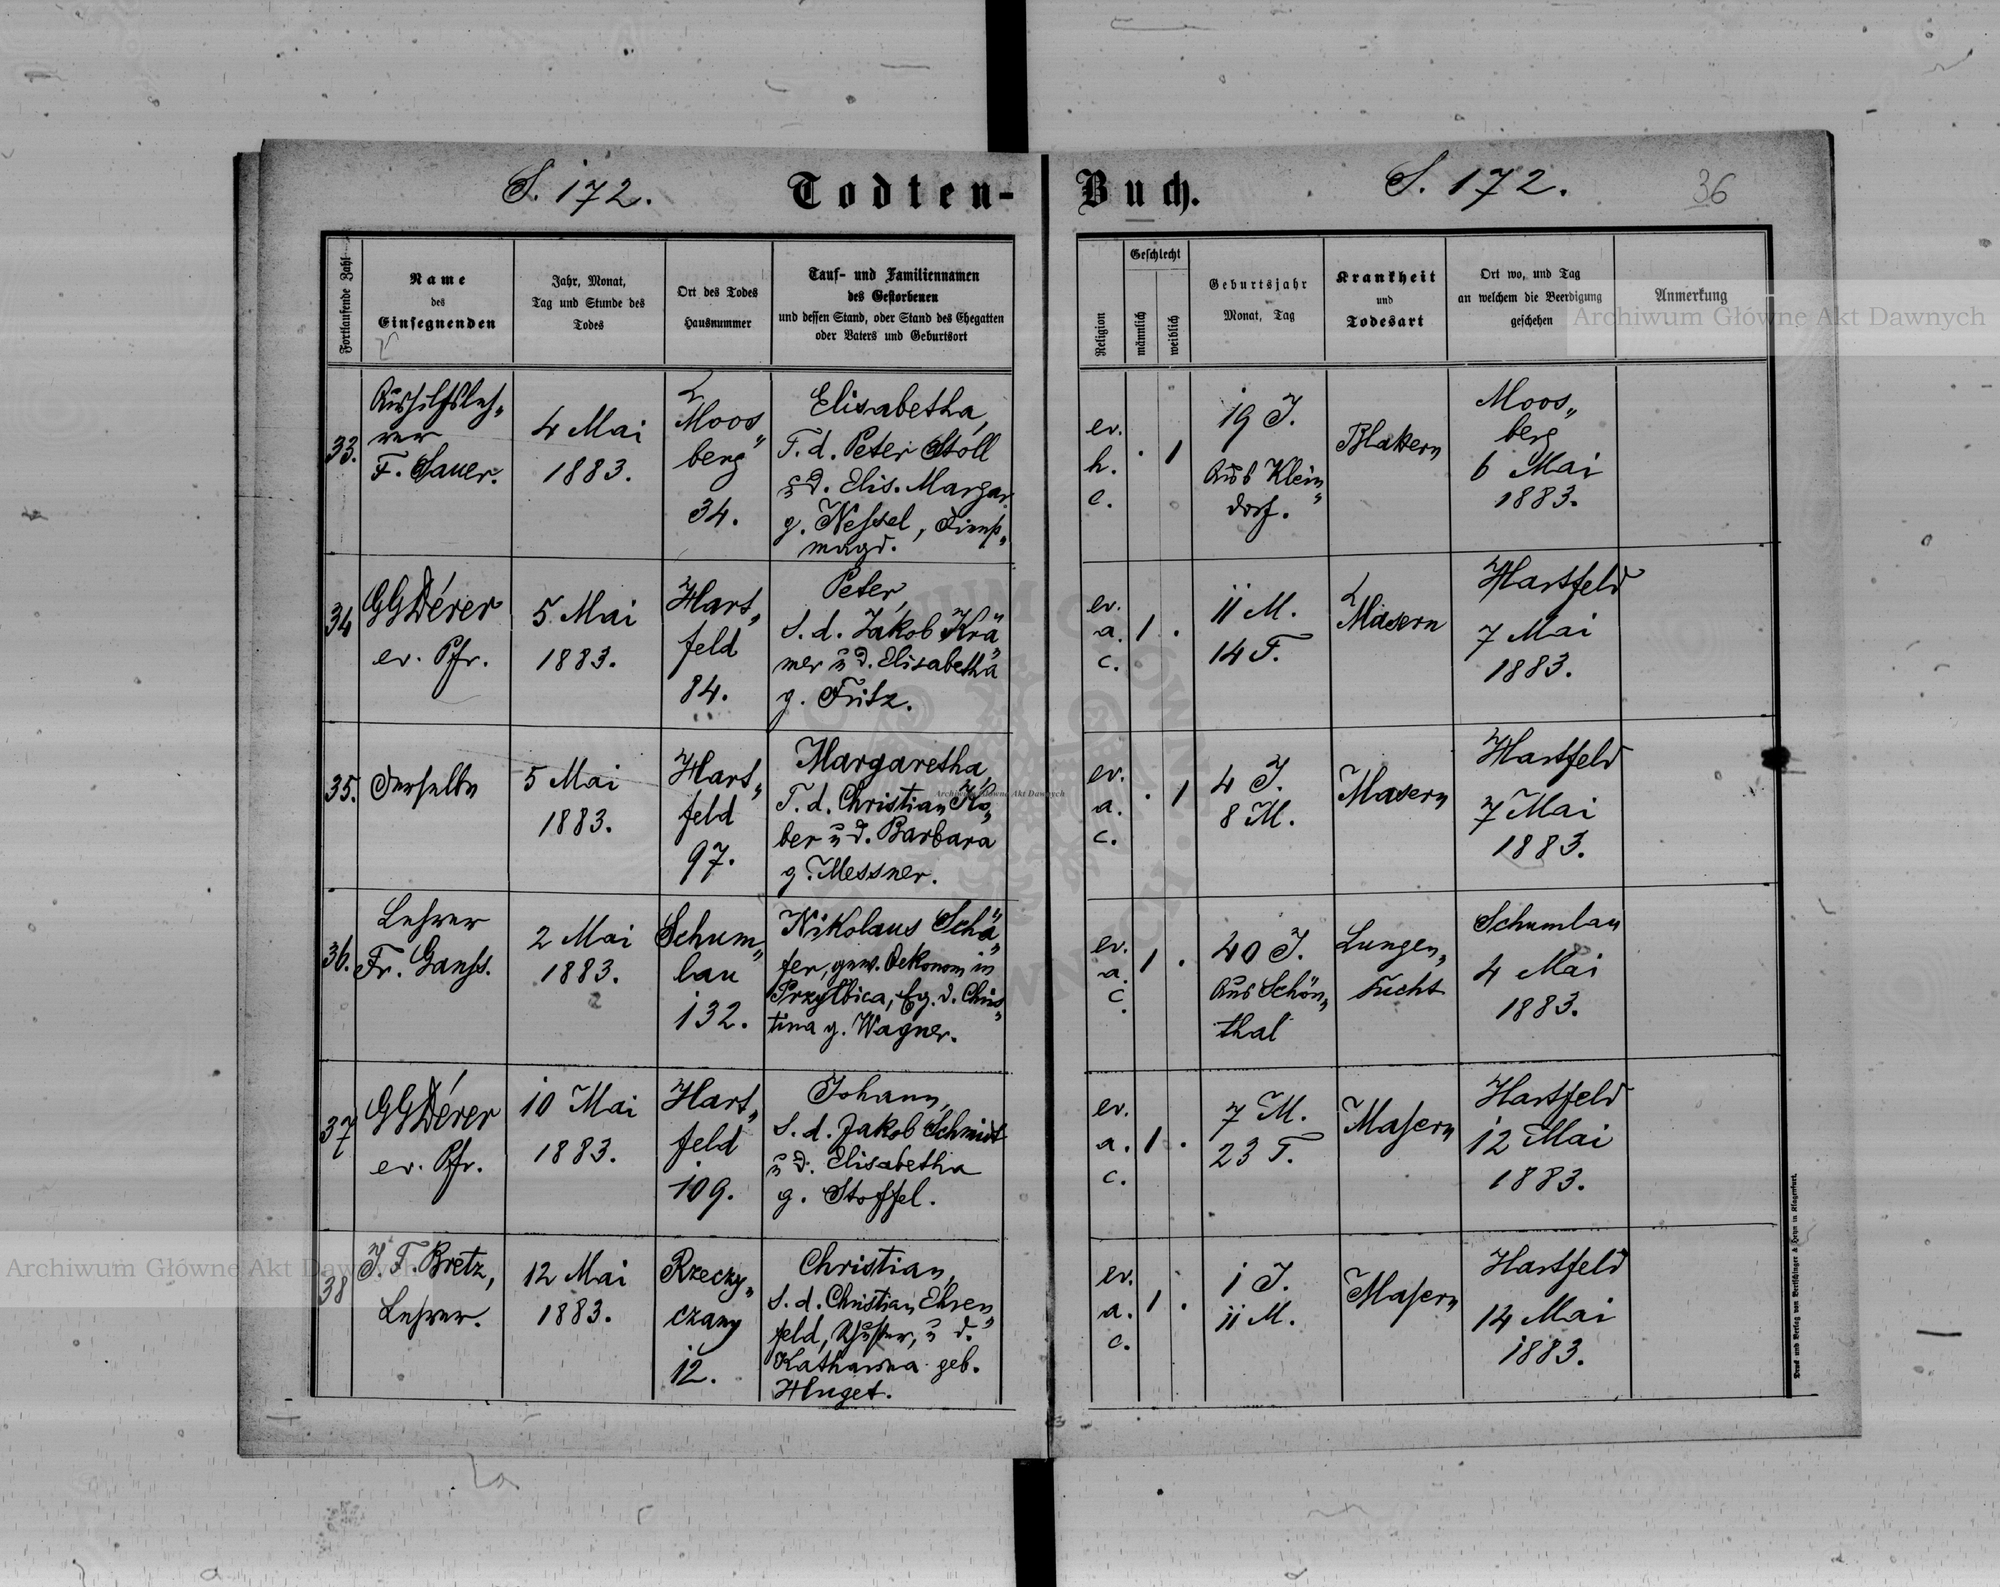 S. 172.
Todten-
Buch.
S. 172.
36
Fortlaufende Zahl
Name
des
Einsegnenden
Jahr, Monat,
Tag und Stunde des
Todes
Ort des Todes
Hausnummer
Tauf- und Familiennamen
des Gestorbenen
und dessen Stand, oder Stand des Ehegatten
oder Vaters und Geburtsort
Religion
Geschlecht
männlich
weiblich
Geburtsjahr
Monat, Tag
Krankheit
und
Todesart
Ort wo, und Tag
an welchem die Beerdigung
geschehen
Anmerkung
33.
Aushilfsleh„
rer
F. Sauer.
4 Mai
1883.
Moos„
berg
34.
Elisabetha,
T. d. Peter Stoll
u d. Elis. Margar.
g. Nessel, Dienst„
magd.
ev.
h.
c.
. 1
19 J.
Aus Klein„
dorf.
Blattern
Moos„
berg
6 Mai
1883.
34
GGDérer
ev. Pfr.
5 Mai
1883.
Hart„
feld
84.
Peter,
S. d. Jakob Krä„
mer u d. Elisabetha
g. Fritz.
ev.
a.
c.
1 .
11 M.
14 T.
Masern
Hartfeld
7 Mai
1883.
35.
Derselbe
5 Mai
1883.
Hart„
feld
97.
Margaretha,
T. d. Christian Ko„
ber u d. Barbara
g. Messner.
ev.
a.
c.
. 1
4 J.
8 M.
Masern
Hartfeld
7 Mai
1883.
36.
Lehrer
Fr. Ganss.
2 Mai
1883.
Schum„
lau
132.
Nikolaus Schä„
fer, gew. Oekonom in
Przylbica, Eg. d. Chris„
tina g. Wagner.
ev.
a.
c.
1 .
40 J.
Aus Schön„
thal
Lungen„
sucht
Schumlau
4 Mai
1883.
37
GGDérer
ev. Pfr.
10 Mai
1883.
Hart„
feld
109.
Johann,
S. d. Jakob Schmidt
u d. Elisabetha
g. Stoffel.
ev.
a.
c.
1 .
7 M.
23 T.
Masern
Hartfeld
12 Mai
1883.
38
J. F. Bretz,
Lehrer.
12 Mai
1883.
Rzeczy„
czany
12.
Christian,
S. d. Christian Ehren„
feld, Schuster, u d.
Katharina geb.
Huget.
ev.
a.
c.
1 .
1 J.
11 M.
Masern
Hartfeld
14 Mai
1883.
Druck und Verlag von Bertschinger & Heyn in Klagenfurt.
Archiwum Główne Akt Dawnych
Archiwum Główne Akt Dawnych
Archiwum Główne Akt Dawnych